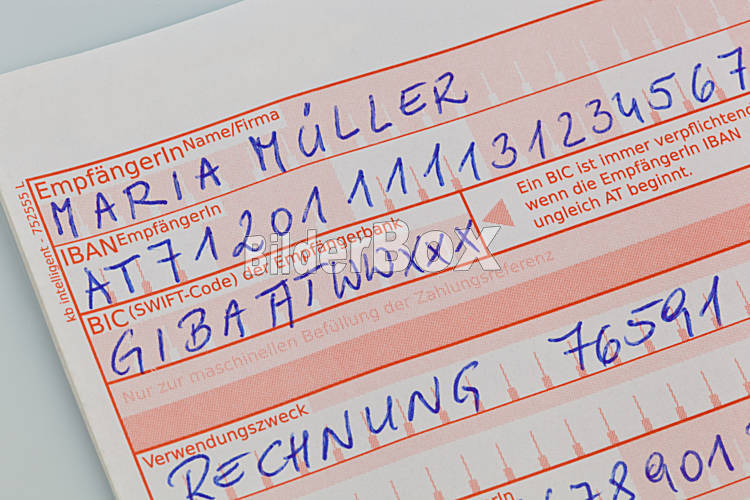 EmpfängerIn Name/Firma
MARIA MÜLLER
IBAN EmpfängerIn
AT71201111131234567
BIC (SWIFT-Code) der Empfängerbank
GIBAATWWXXX
Ein BIC ist immer verpflichtend
wenn die EmpfängerIn IBAN
ungleich AT beginnt.
Nur zur maschinellen Befüllung der Zahlungsreferenz
Verwendungszweck
RECHNUNG 76591
678901
kb intelligent - 752555 L
BilderBOX